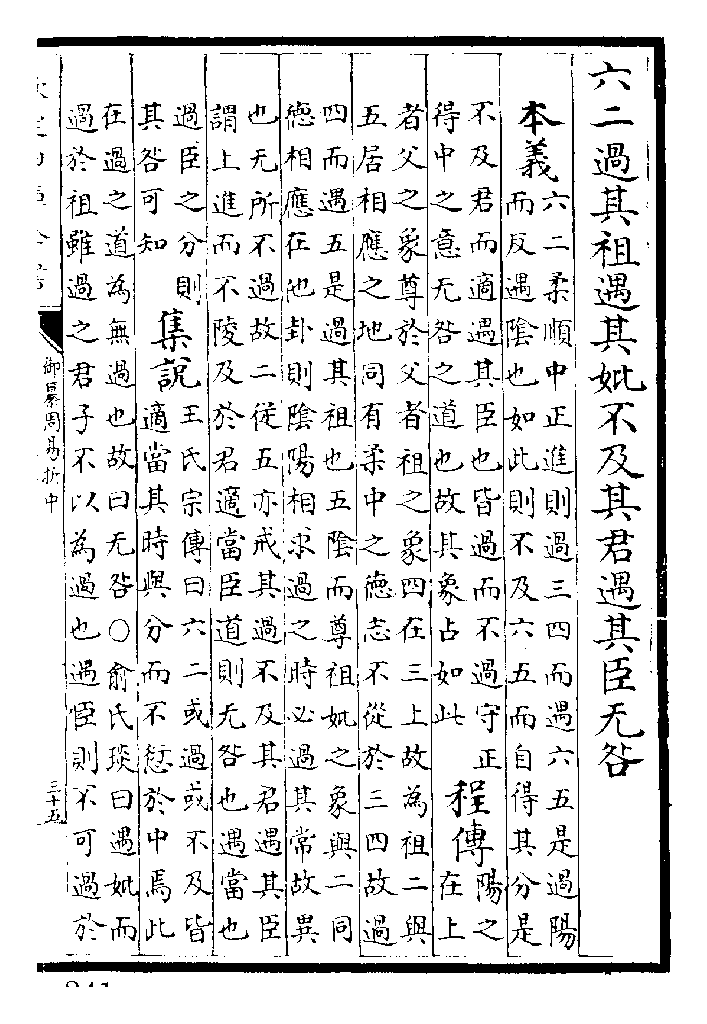 六二過其祖遇其妣不及其君遇其臣无咎
本義
六二柔順中正進則過三四而遇六五是過陽
而反遇陰也如此則不及六五而自得其分是
不及君而適遇其臣也皆過而不過守正
得中之意无咎之道也故其象占如此
程傳
陽之
在上
者父之象尊於父者祖之象四在三上故為祖二與
五居相應之地同有柔中之德志不從於三四故過
四而遇五是過其祖也五陰而尊祖妣之象與二同
德相應在他卦則陰陽相求過之時必過其常故異
也无所不過故二從五亦戒其過不及其君遇其臣
謂上進而不陵及於君適當臣道則无咎也遇當也
過臣之分則
其咎可知
集說
王氏宗傳曰六二或過或不及皆
適當其時與分而不愆於中焉此
在過之道為無過也故曰无咎○俞氏琰曰遇妣而
過於祖雖過之君子不以為過也遇臣則不可過於
御纂周易折中
三十五